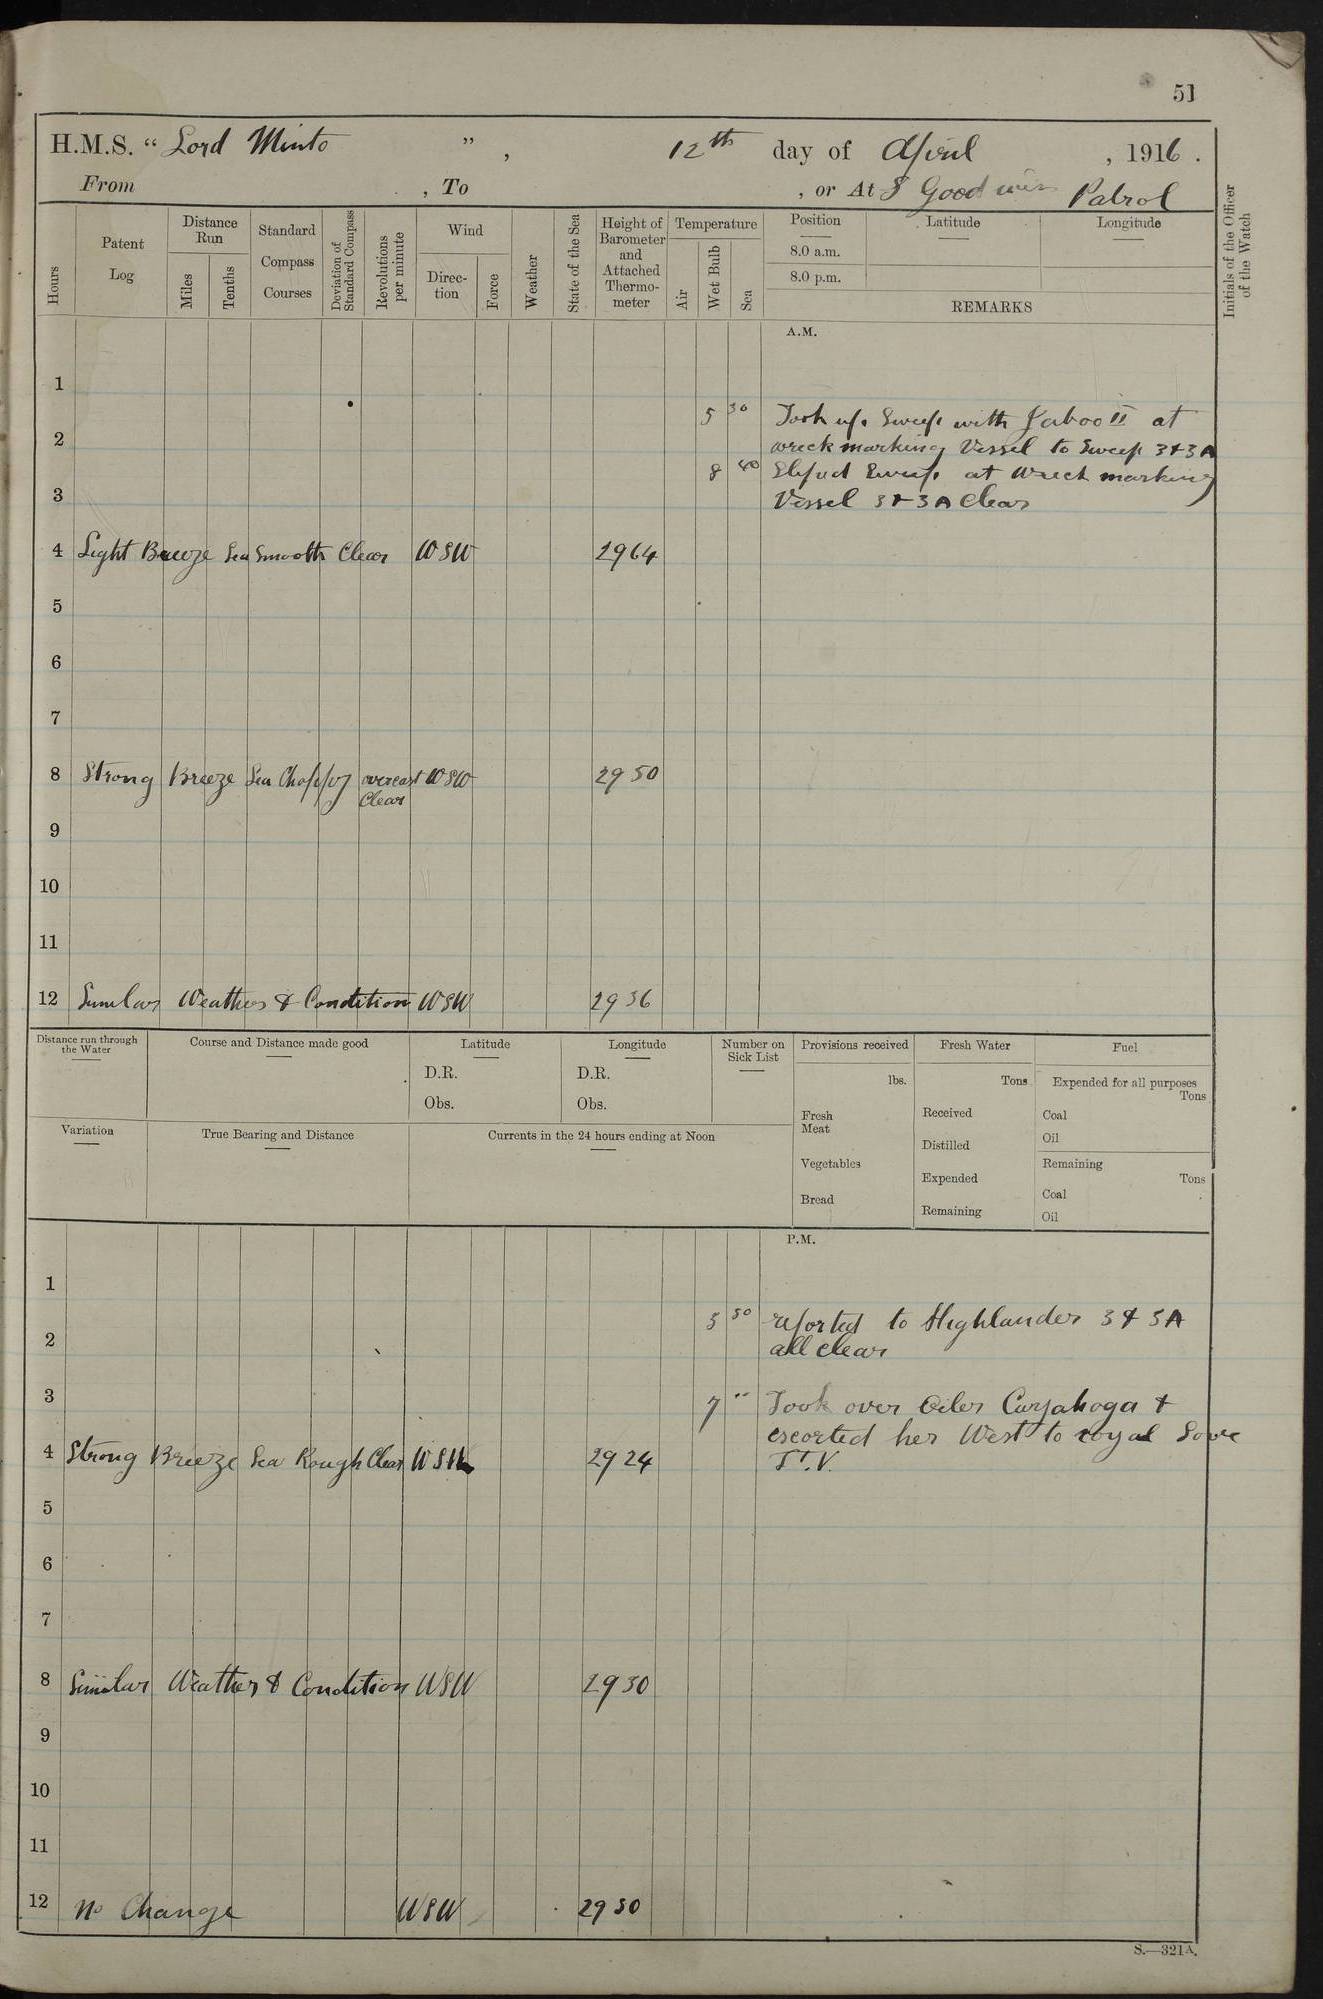 51
H.M.S. " Lord Minto " , 12th day of April , 1916 .
From , To , or At S Goodwin Patrol
Hours
Patent Log
Distance Run
Miles
Tenths
Standard Compass Courses
Deviation of Standard Compass
Revolutions per minute
Wind
Direc-tion
Force
Weather
State of the Sea
Height of Barometer and Attached Thermo-meter
Temperature
Air
Wet Bulb
Sea
Position
Latitude
Longitude
8.0 a.m.
8.0 p.m.
REMARKS
Initials of the Officer of the Watch
A.M.
1
5 30 Took up Sweep with II at
2
wreck marking Vessel to Sweep 3 & 3A
8 40 Slipped Sweep at Wreck marking
3
Vessel 3 & 3A Clear
4 Light Breeze Sea Smooth Clear WSW 2964
5
6
7
8 Strong Breeze Sea Choppy overcast WSW 2950
Clear
9
10
11
12 Similar Weather & Condition WSW 2936
Distance run through the Water
Course and Distance made good
Latitude
D.R.
Obs.
Longitude
D.R.
Obs.
Number on Sick List
Provisions received
lbs.
Fresh Meat
Vegetables
Bread
Fresh Water
Tons
Received
Distilled
Expended
Remaining
Fuel
Expended for all purposes
Tons
Coal
Oil
Remaining
Tons
Coal
Oil
Variation
True Bearing and Distance
Currents in the 24 hours ending at Noon
P.M.
1
reported to Highlander 3 & 3A
2
all clear
3
7 " Took over Oiler Cuyahoga &
escorted her West to royal Sove
4 Strong Breeze Sea Rough Clear WSW 2924
LT.V.
5
6
7
8 Similar Weather & Condition WSW 2930
9
10
11
12 No Change WSW 2930
S.—321A.